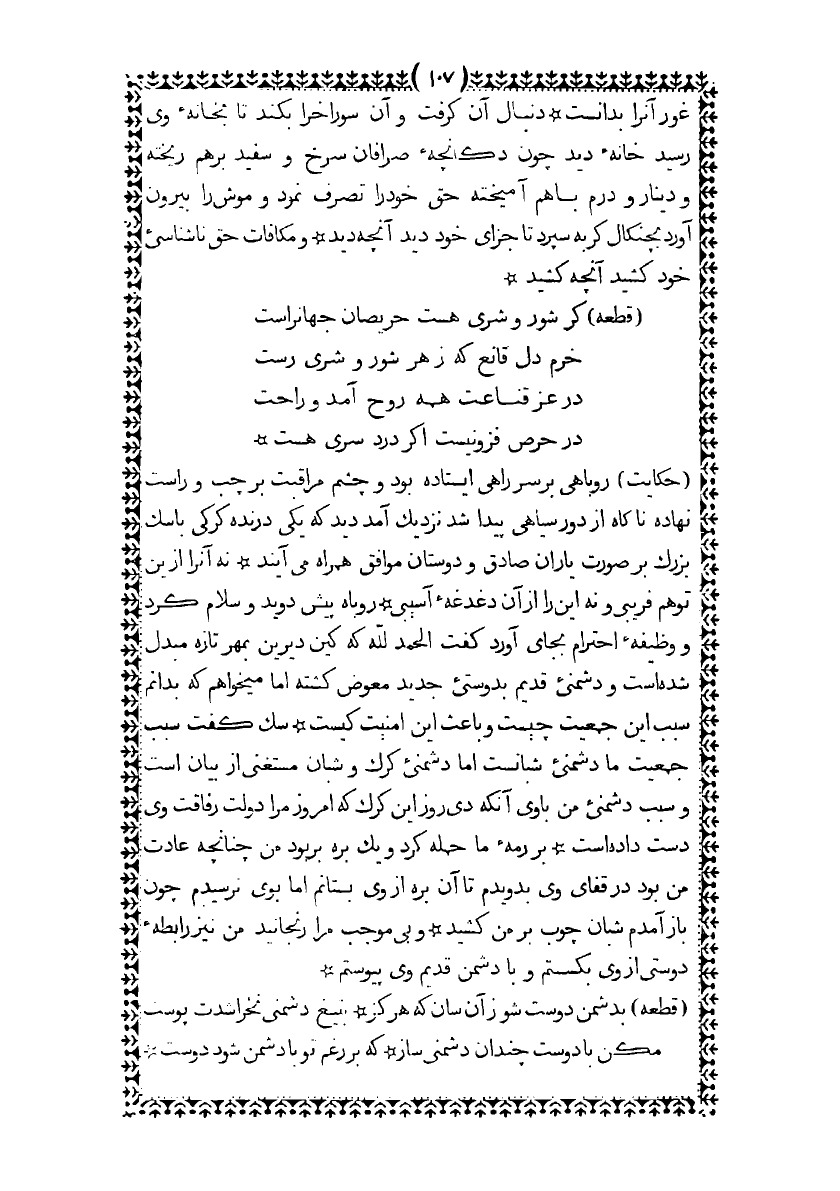 ( ١٠٧ )
غور آنرا بدانست * دنبال آن كرفت و آن سوراخرا بكند تا بخانهٔ وى
رسيد خانهٔ ديد چون دكانچهٔ صرافان سرخ و سفيد برهم ريخته
و دينار و درم باهم آميخته حق خودرا تصرف نمود و موش را بيرون
آورد بچنكال كربه سپرد تا جزاى خود ديد آنچه ديد * و مكافات حق ناشناسئ
خود كشيد آنچه كشيد *
(قطعه) كر شور و شرى هست حريصان جهانراست
خرم دل قانع كه ز هر شور و شرى رست
در عز قناعت همه روح آمد و راحت
در حرص فزونيست اكر درد سرى هست *
(حكايت) روباهى برسر راهى ايستاده بود و چشم مراقبت بر چپ و راست
نهاده ناكاه از دور سياهى پيدا شد نزديك آمد ديد كه يكى درنده كركى باسك
بزرك بر صورت ياران صادق و دوستان موافق همراه مى آيند * نه آنرا ازين
توهم فريبى و نه اين را از آن دغدغهٔ آسيبى * روباه پيش دويد و سلام كرد
و وظيفهٔ احترام بجاى آورد كفت الحمد لله كه كين ديرين بمهر تازه مبدل
شده است و دشمنئ قديم بدوستئ جديد معوض كشته اما ميخواهم كه بدانم
سبب اين جمعيت چيست و باعث اين امنيت كيست * سك كفت سبب
جمعيت ما دشمنئ شبانست اما دشمنئ كرك و شبان مستغنى از بيان است
و سبب دشمنئ من باوى آنكه دى روز اين كرك كه امروز مرا دولت رفاقت وى
دست داده است * بر رمهٔ ما حمله كرد و يك بره بربود من چنانچه عادت
من بود در قفاى وى بدويدم تا آن بره از وى بستانم اما بوى نرسيدم چون
باز آمدم شبان چوب بر من كشيد * و بى موجب مرا رنجانيد من نيز رابطهٔ
دوستى از وى بكستم و با دشمن قديم وى پيوستم *
(قطعه) بدشمن دوست شو ز آن سان كه هركز * بتيغ دشمنى نخراشدت پوست
مكن با دوست چندان دشمنى ساز * كه بر رغم تو با دشمن شود دوست *